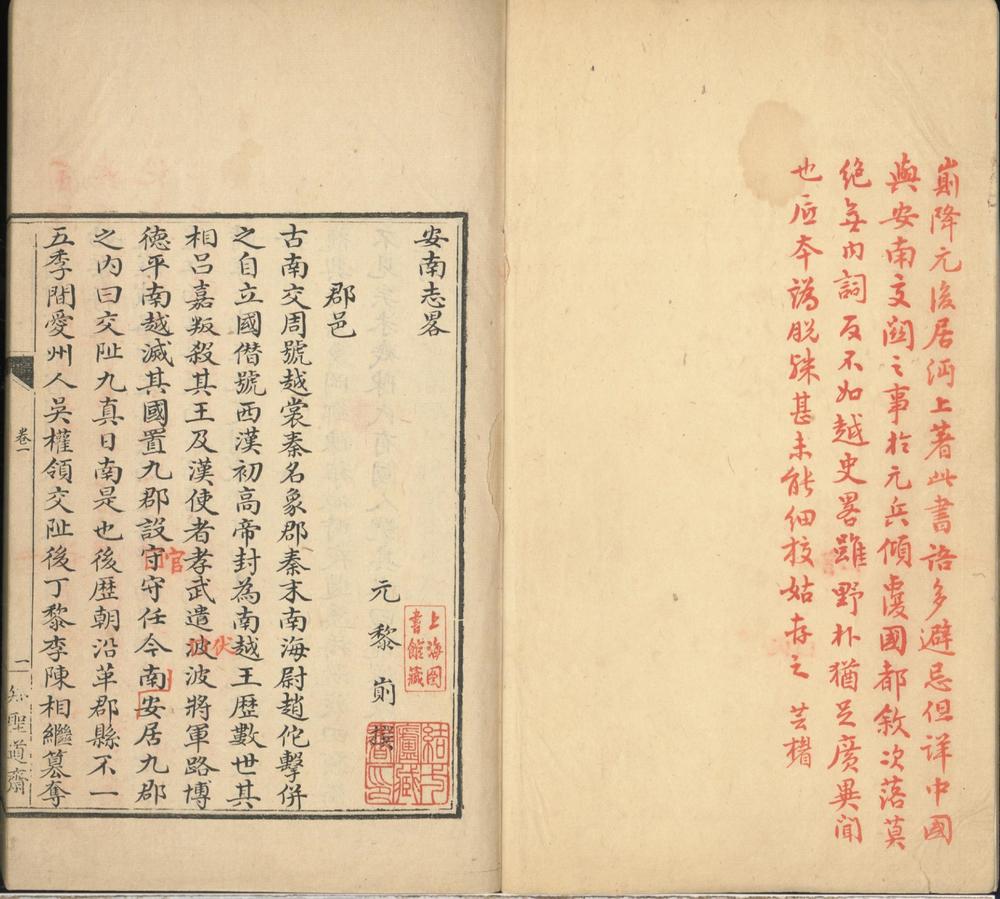 崱降元後居沔上著此書語多避忌但詳中國
與安南交關之事於元兵傾覆國都敘次落莫
絕無內詞反不如越史畧雖野朴猶足廣異聞
也原本譌脫殊甚未能細校姑存之 芸楣
安南志畧
元黎崱撰
上海图
書館藏
結弌
廬藏
書印
郡邑
古南交周號越裳秦名象郡秦末南海尉趙佗擊併
之自立國僣號西漢初高帝封為南越王歴數世其
相呂嘉叛殺其王及漢使者孝武遣波波將軍路博
伏
德平南越滅其國置九郡設守守任今南安居九郡
官
之內曰交阯九真日南是也後歴朝沿革郡縣不一
五季間愛州人吳權領交阯後丁黎李陳相繼簒奪
卷一
一
知聖道齋